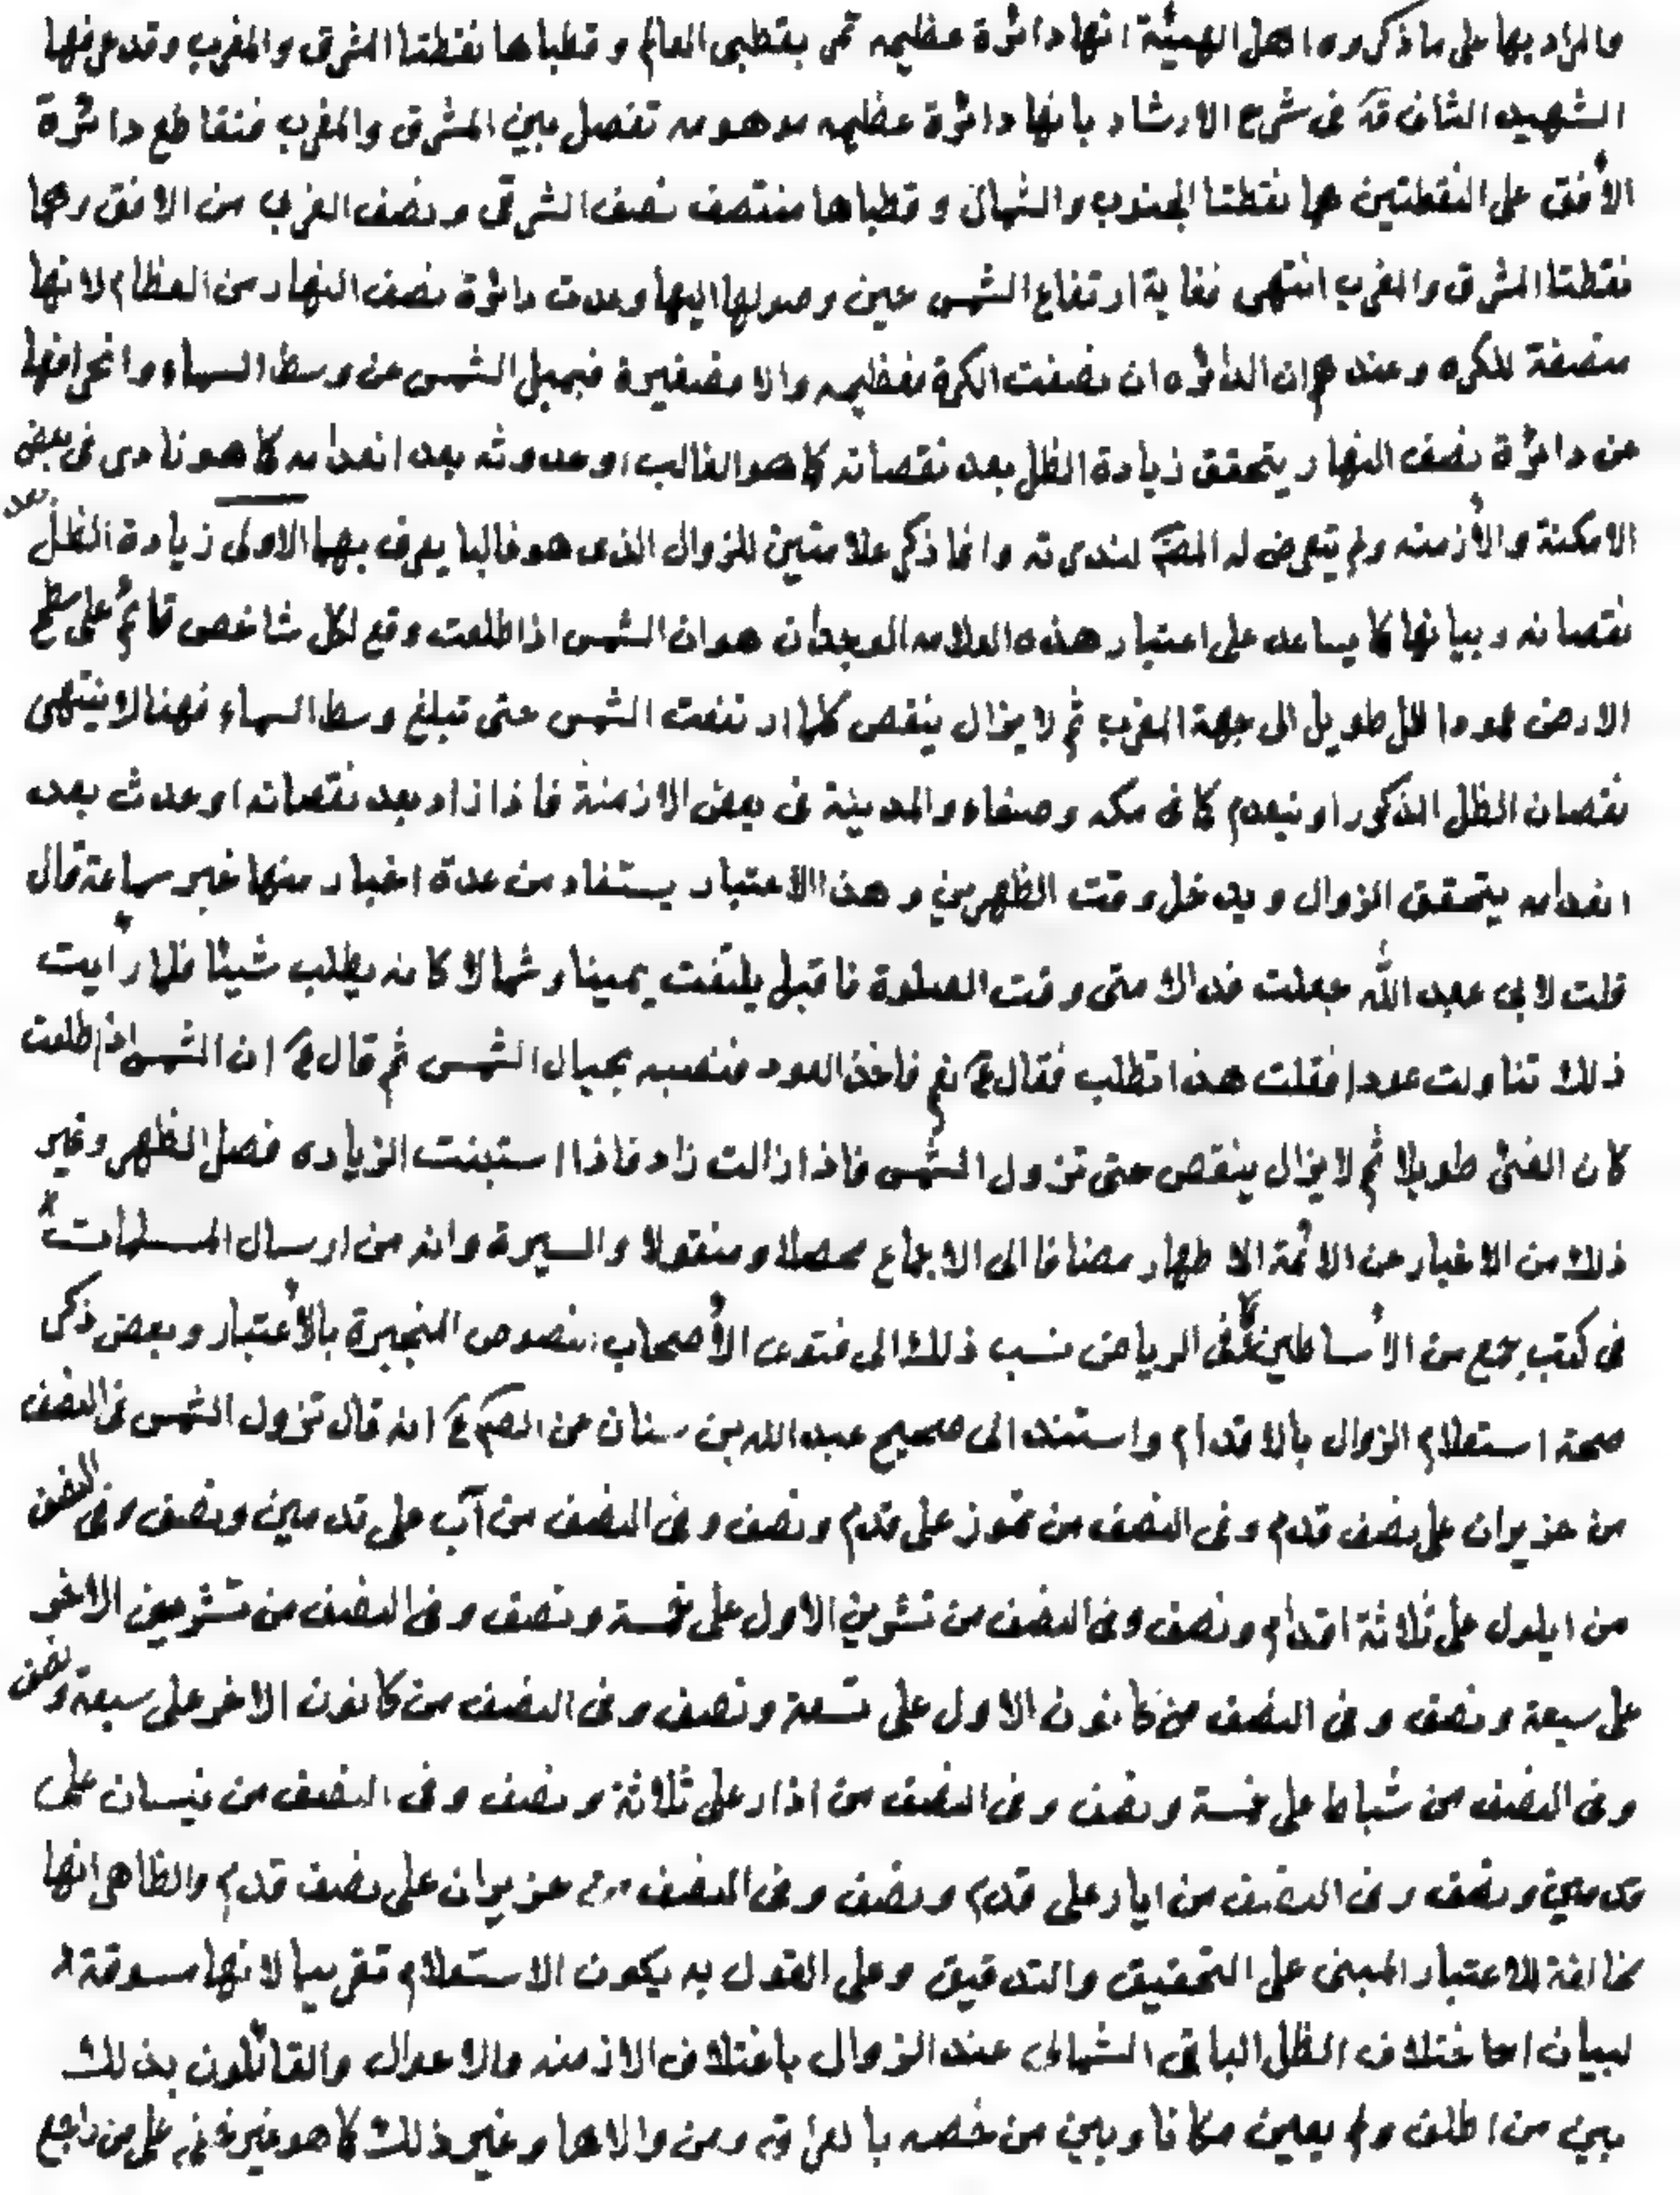 والمراد بها على ما ذكروه اهل الهيئة انها دائرة عظيمه تمر بقطبى العالم و قطباها نقطتا المشرق والمغرب وقد عرفها
الشهيد الثانى قدّ فى شرح الارشاد بانها دائرة عظيمه موهومه تفصل بين المشرق والمغرب فتقاطع دائرة
الأفق على النقطتين هما نقطتا الجنوب والشمال و قطباها منتصف نصف الشرقى ونصف الغربى من الافق وهما
نقطتا المشرق والمغرب انتهى فغاية ارتفاع الشمس حين وصولها اليها وعدت دائرة نصف النهار من العظام لانها
منصفة للكره وعندهم ان الدائره ان نصفت الكرة فعظيمه والا فصغيرة فبميل الشمس عن وسط السماء وانحرافها
عن دائرة نصف النهار يتحقق زيادة الظل بعد نقصانه كما هو الغالب او حدوثه بعد انعدامه كما هو نادر فى بعض
الامكنة والأزمنه ولم يتعرض له المصّ لندرته وانما ذكر علامتين للزوال الذى هو غالبا يعرف بهما الاولى زيادة الظل بعد
نقصانه وبيانها كما يساعد على اعتبار هذه العلامه الوجدان هو ان الشمس اذا طلعت وقع لكل شاخص قائم على سطح
الارض عمودا ظل طويل الى جهة المغرب ثم لا يزال ينقص كلما ارتفعت الشمس حتى تبلغ وسط السماء فهنالا ينتهى
نقصان الظل المذكور او ينعدم كما فى مكه وصنعاء والمدينة فى بعض الازمنة فاذا زاد بعد نقصانه او حدث بعد
انعدامه يتحقق الزوال ويدخل وقت الظهرين و هذا الاعتبار يستفاد من عدة اخبار منها خبر سماعة قال
قلت لابى عبد الله جعلت فداك متى وقت الصلوة فاقبل يلتفت يمينا و شمالا كانه يطلب شيئا فلما رأيت
ذلك تناولت عودا فقلت هذا تطلب فقال عّ نعم فاخذ العود فنصبه بحيال الشمس ثم قال عّ ان الشمس اذا طلعت
كان الفئ طويلا ثم لا يزال ينقص حتى تزول الشمس فاذا زالت زاد فاذا استبنت الزياده فصل الظهر وغير
ذلك من الاخبار عن الائمة الاطهار مضافا الى الاجماع محصلا ومنقولا والسيرة وانه من ارسال المسلمات
فى كتب جمع من الأساطين ففى الرياض نسب ذلك الى فتوى الأصحاب، ونصوص المنجبرة بالأعتبار وبعض ذكر
صحة استعلام الزوال بالاقدام واستند الى صحيح عبد الله بن سنان عن الصّ عّ انه قال تزول الشمس فى النصف
من حزيران على نصف قدم وفى النصف من تموز على قدم ونصف وفى النصف من آب على قدمين ونصف وفى النصف
من ايلول على ثلاثة اقدام ونصف وفى النصف من تشرين الاول على خمسة ونصف وفى النصف من تشرين الاخر
على سبعة ونصف وفى النصف من كانون الاول على تسعة ونصف وفى النصف من كانون الاخر على سبعة ونصف
وفى النصف من شباط على خمسة ونصف وفى النصف من اذار على ثلاثة ونصف وفى النصف من نيسان على
قدمين ونصف وفى النصف من ايار على قدم ونصف وفى النصف من حزيران على نصف قدم والظاهر انها
مخالفة للاعتبار المبنى على التحقيق والتدقيق وعلى القول به يكون الاستعلام تقريبيا لانها مسوقة
لبيان اختلاف الظل الباقى الشمالى عند الزوال باختلاف الازمنه والاحوال والقائلون بذلك
بين من اطلق ولم يعين مكانا وبين من خصه بالعراق ومن والاها وغير ذلك كما هو غير خفى على من راجع